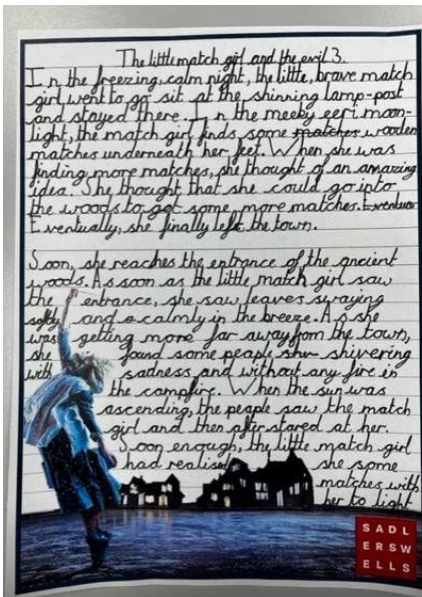 The little match girl and the evil 3.
In the freezing, calm night, the little, brave match
girl went to go sit at the shinning lamp-post
and stayed there. In the meeky eeri moon-
light, the match girl finds some matches wooden
matches underneath her feet. When she was
finding more matches, she thought of an amazing
idea. She thought that she could go into
the woods to get some more matches. Eventuer
Eventually, she finally left the town.
Soon, she reaches the entrance of the ancient
woods. As soon as the little match girl saw
the entrance, she saw leaves swaying
softly and a calmly in the breeze. As she
was getting more far away from the town,
she found some peaple shw shivering
with sadness and without any fire in
the campfire. When the sun was
ascending, the peaple saw the match
girl and then after stared at her.
Soon enough, the little match girl
had realised she some
matches with
her to light
SADL
ERSW
ELLS